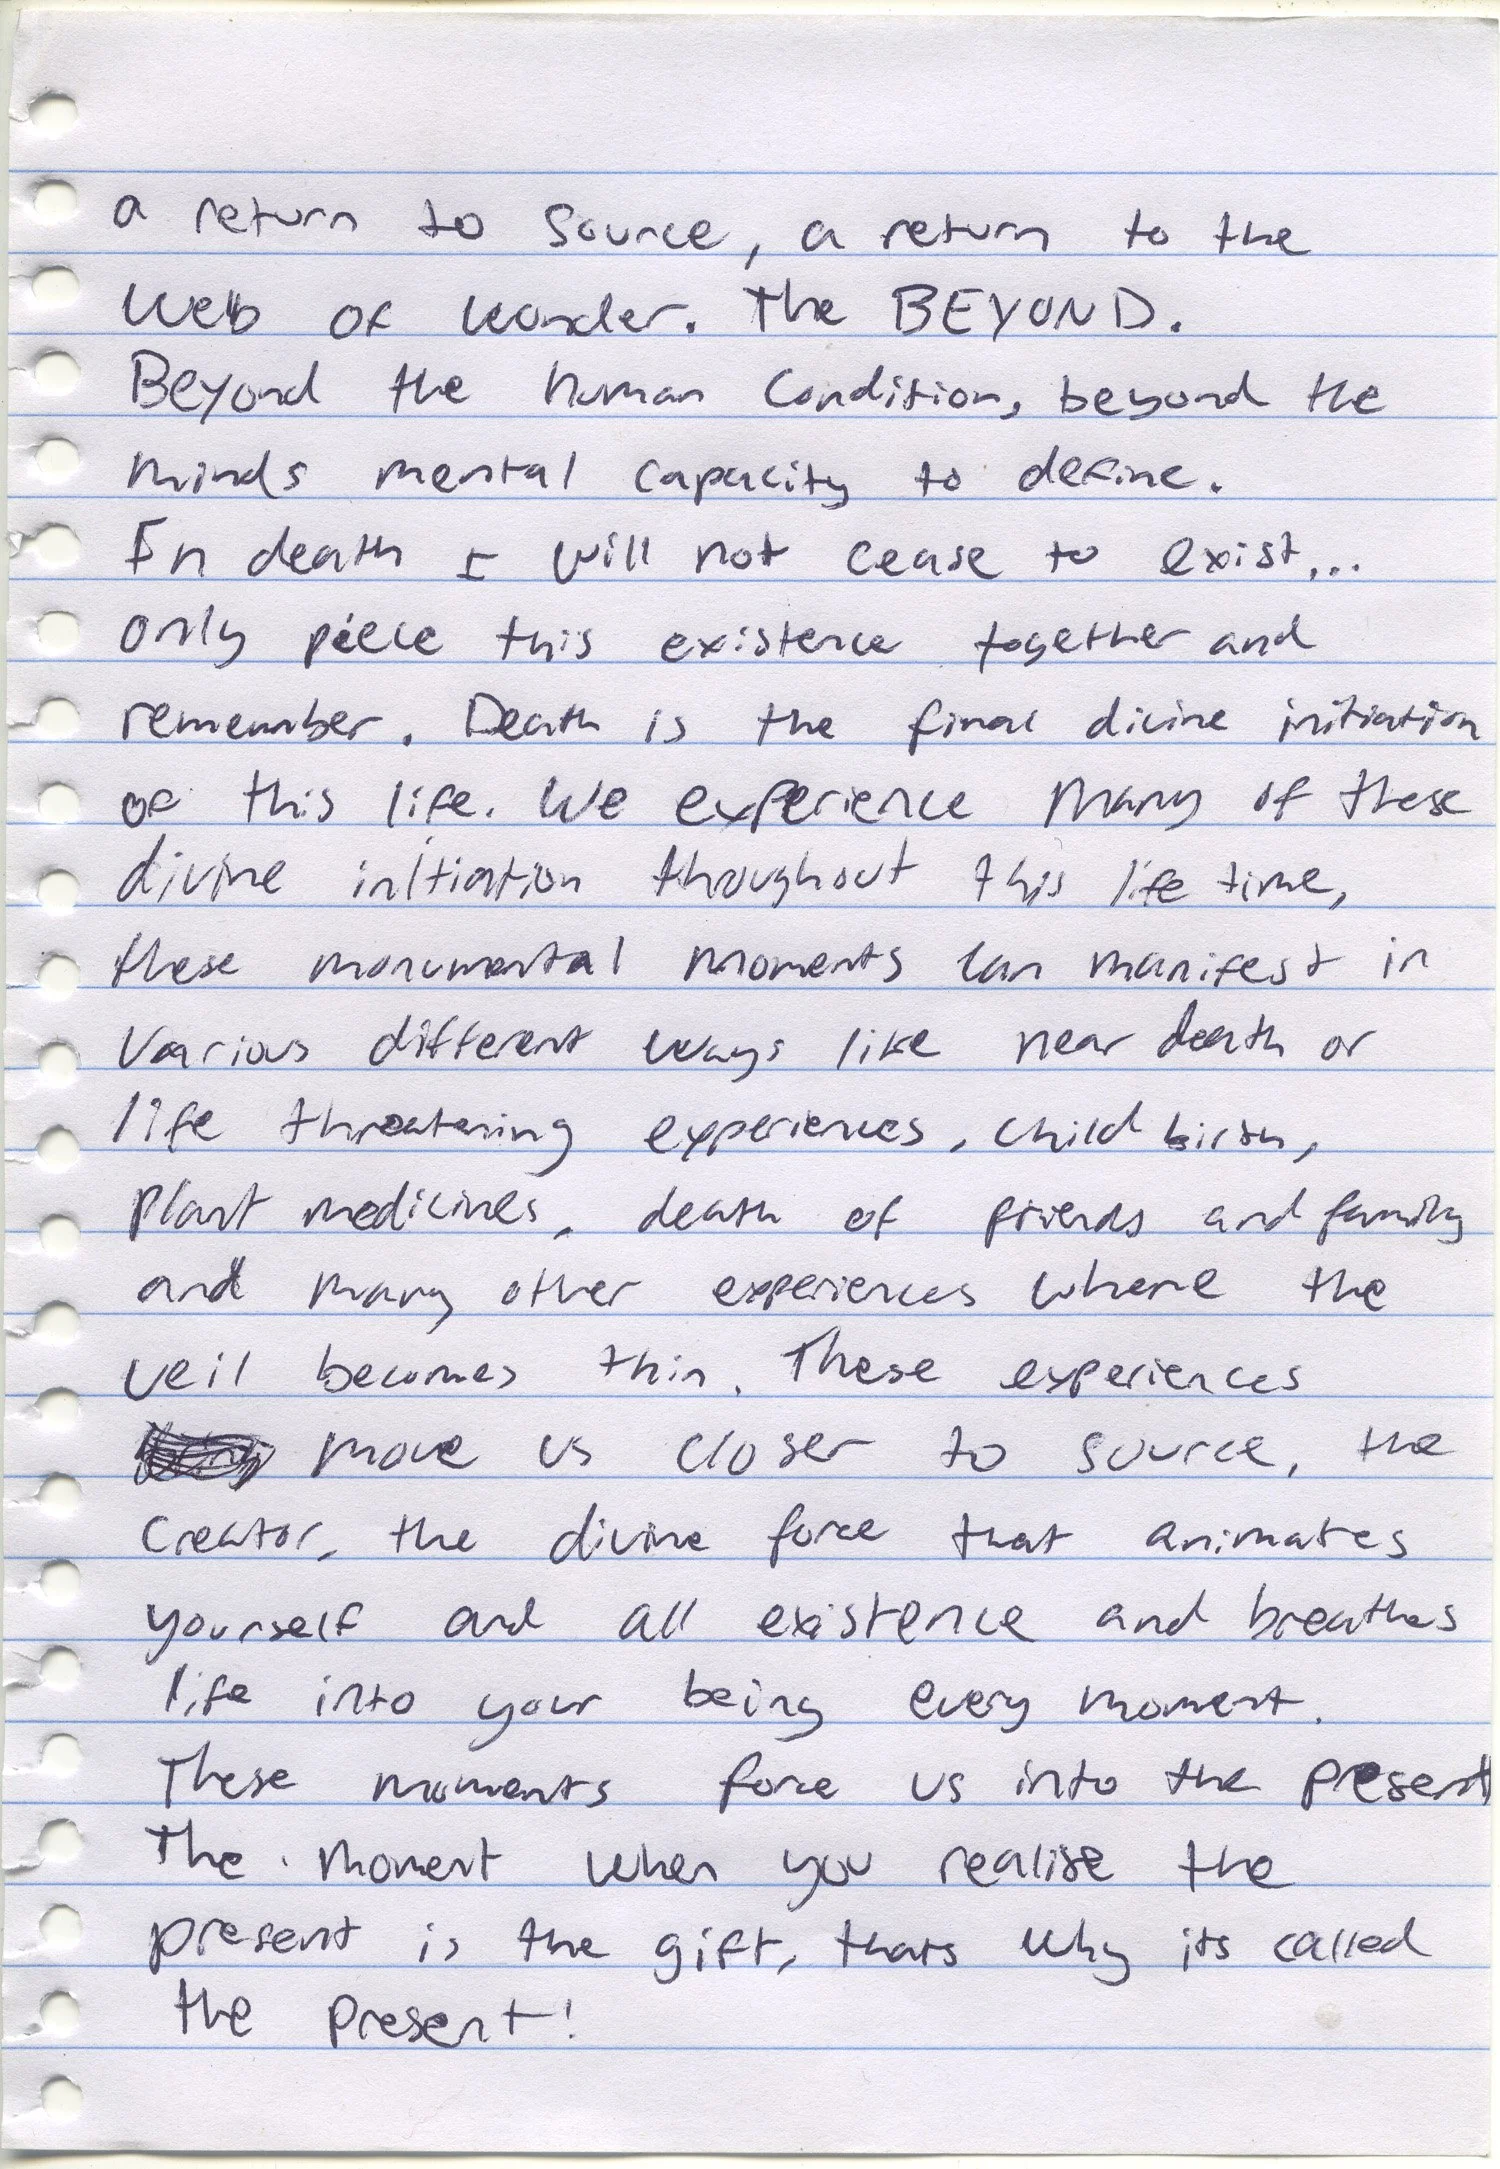 a return to source, a return to the
web of wonder. The BEYOND.
Beyond the human condition, beyond the
minds mental capacity to define.
In death I will not cease to exist...
only piece this existence together and
remember. Death is the final divine initiation
of this life. We experience many of these
divine initiation throughout this life time,
these monumental moments can manifest in
various different ways like near death or
life threatening experiences, child birth,
plant medicines, death of friends and family
and many other experiences where the
veil becomes thin. These experiences
move us closer to source, the
creator, the divine force that animates
yourself and all existence and breathes
life into your being every moment.
These moments force us into the present
The moment when you realise the
present is the gift, thats why its called
the present!